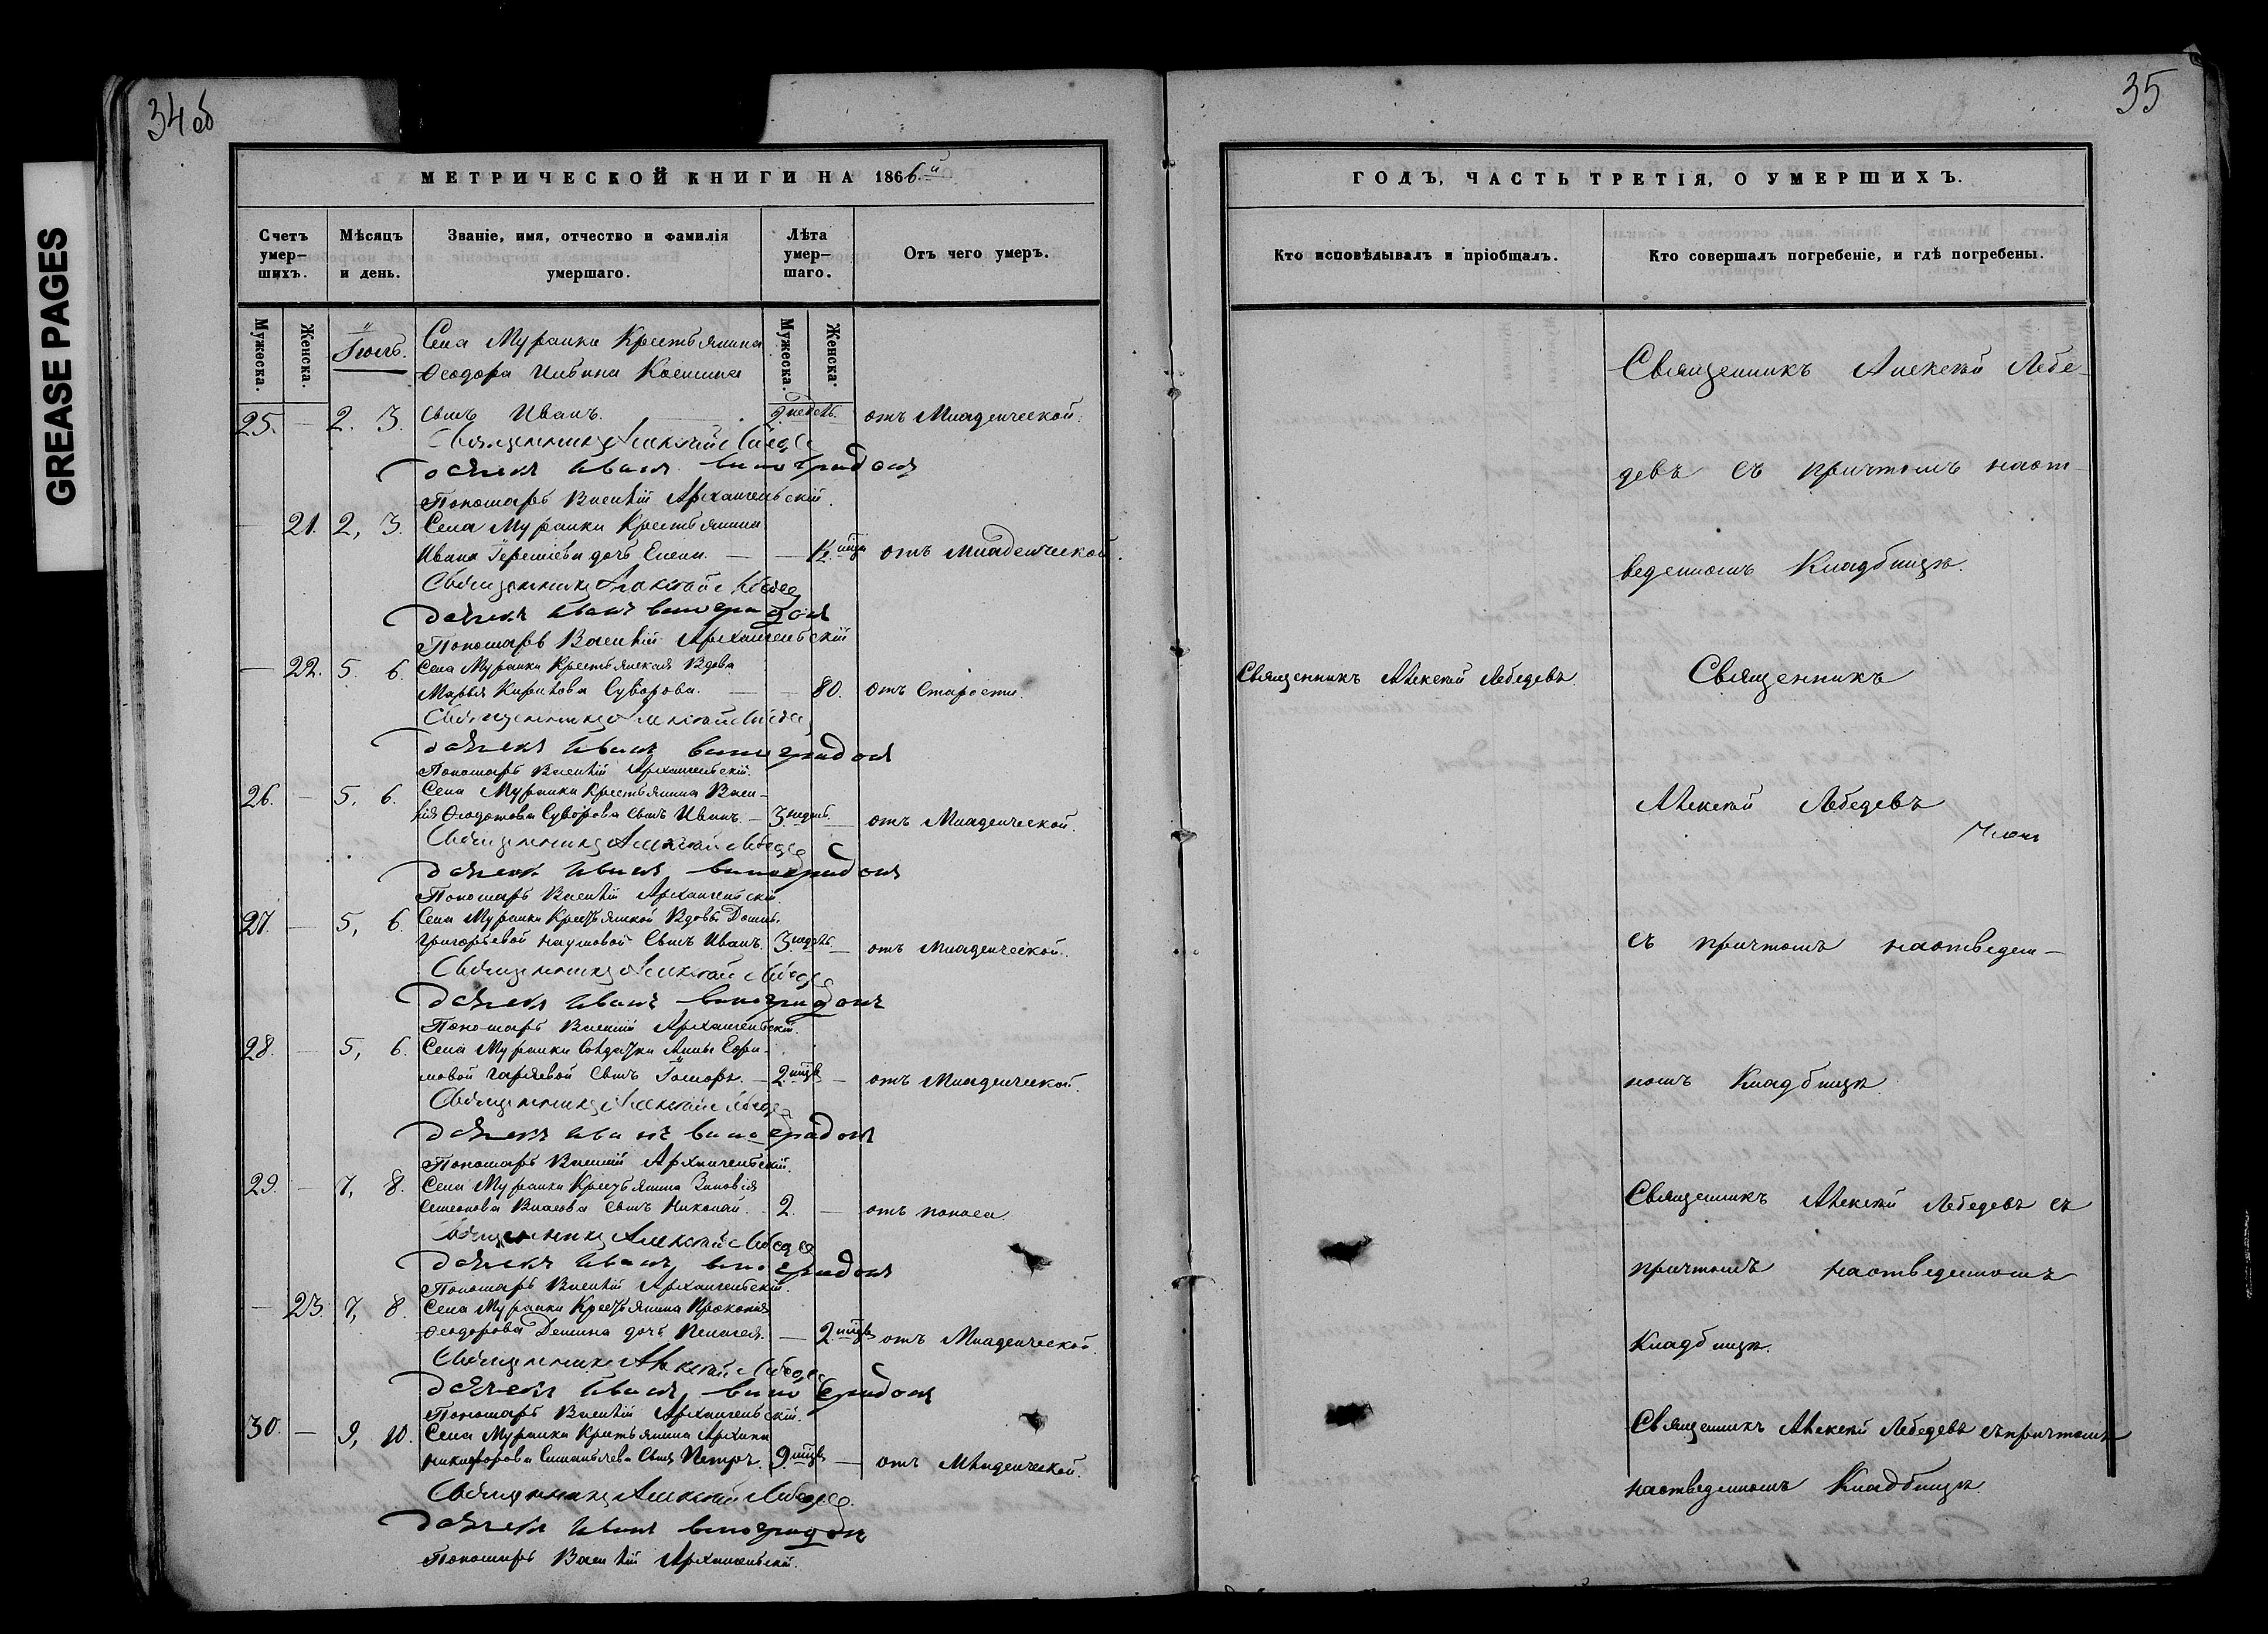 34 об
35
GREASE PAGES
МЕТРИЧЕСКОЙ КНИГИ НА 1866.й
Счетъ умер-шихъ.
Мѣсяцъ и день.
Званіе, имя, отчество и фамилія умершаго.
Лѣта умер-шаго.
Отъ чего умеръ.
Мужеска.
Женска.
Мужеска.
Женска.
Іюль.
Села Муранки Крестьянина
Ѳеодора Ильина
25. — 2. 3. сынъ Иванъ. 2 недѣль. отъ Младенческой.
Священникъ Алексѣй Лебедев
Дьячекъ Иванъ Виноградовъ
Пономарь Василій Архангельскій.
— 21. 2, 3. Села Муранки Крестьянина
Ивана дочь Елена. — — ½ мѣся отъ Младенческой.
Священникъ Алексѣй Лебедев
Дьячекъ Иванъ Виноградовъ
Пономарь Василій Архангельскій
— 22. 5. 6. Села Муранки Крестьянская Вдова
Марья Кирилова Суворова. — — 80. отъ Старости.
Священникъ Алексѣй Лебедев
Дьячекъ Иванъ Виноградовъ
Пономарь Василій Архангельскій.
26. — 5, 6. Села Муранки Крестьянина Васи-
лія Ѳеодотова Суворова сынъ Иванъ. — 3 недѣль. — отъ Младенческой.
Священникъ Алексѣй Лебедев
Дьячекъ Иванъ Виноградовъ
Пономарь Василій Архангельскій.
27. — 5, 6. Села Муранки Крестьянской Вдовы
Григорьевой Наумовой Сынъ Иванъ. 3 недѣль. — отъ Младенческой.
Священникъ Алексѣй Лебедев
Дьячекъ Иванъ Виноградовъ
Пономарь Василій Архангельскій.
28. — 5, 6. Села Муранки Солдатки Анны Ефи-
мовой Сынъ — 2 мѣся — отъ Младенческой.
Священникъ Алексѣй Лебедев
Дьячекъ Иванъ Виноградовъ
Пономарь Василій Архангельскій.
29. — 7, 8. Села Муранки Крестьянина Зиновія
Семенова Власова сынъ Николай. 2. — отъ поноса.
Священникъ Алексѣй Лебедев
Дьячекъ Иванъ Виноградовъ
Пономарь Василій Архангельскій.
— 23. 7, 8. Села Муранки Крестьянина Прокопія
Ѳеодорова дочь Пелагея. — 2 мѣся отъ Младенческой.
Священникъ Алексѣй Лебедев
Дьячекъ Иванъ Виноградовъ
Пономарь Василій Архангельскій.
30. — 9, 10. Села Муранки Крестьянина Архипа
Никифорова Сынъ Петръ. 9 мѣся — отъ Младенческой.
Священникъ Алексѣй Лебедев
Дьячекъ Иванъ Виноградовъ
Пономарь Василій Архангельскій.
ГОДЪ, ЧАСТЬ ТРЕТІЯ, О УМЕРШИХЪ.
Кто исповѣдывалъ и пріобщалъ.
Кто совершалъ погребеніе, и гдѣ погребены.
Священникъ Алексѣй Лебе-
девъ съ причтомъ наот-
веденномъ Кладбищѣ.
Священникъ Алексѣй Лебедевъ.
Священникъ
Алексѣй Лебедевъ
съ причтомъ наотведен-
номъ Кладбищѣ.
Священникъ Алексѣй Лебедевъ съ
причтомъ наотведенномъ
Кладбищѣ.
Священникъ Алексѣй Лебедевъ съ причтомъ
наотведенномъ Кладбищѣ.